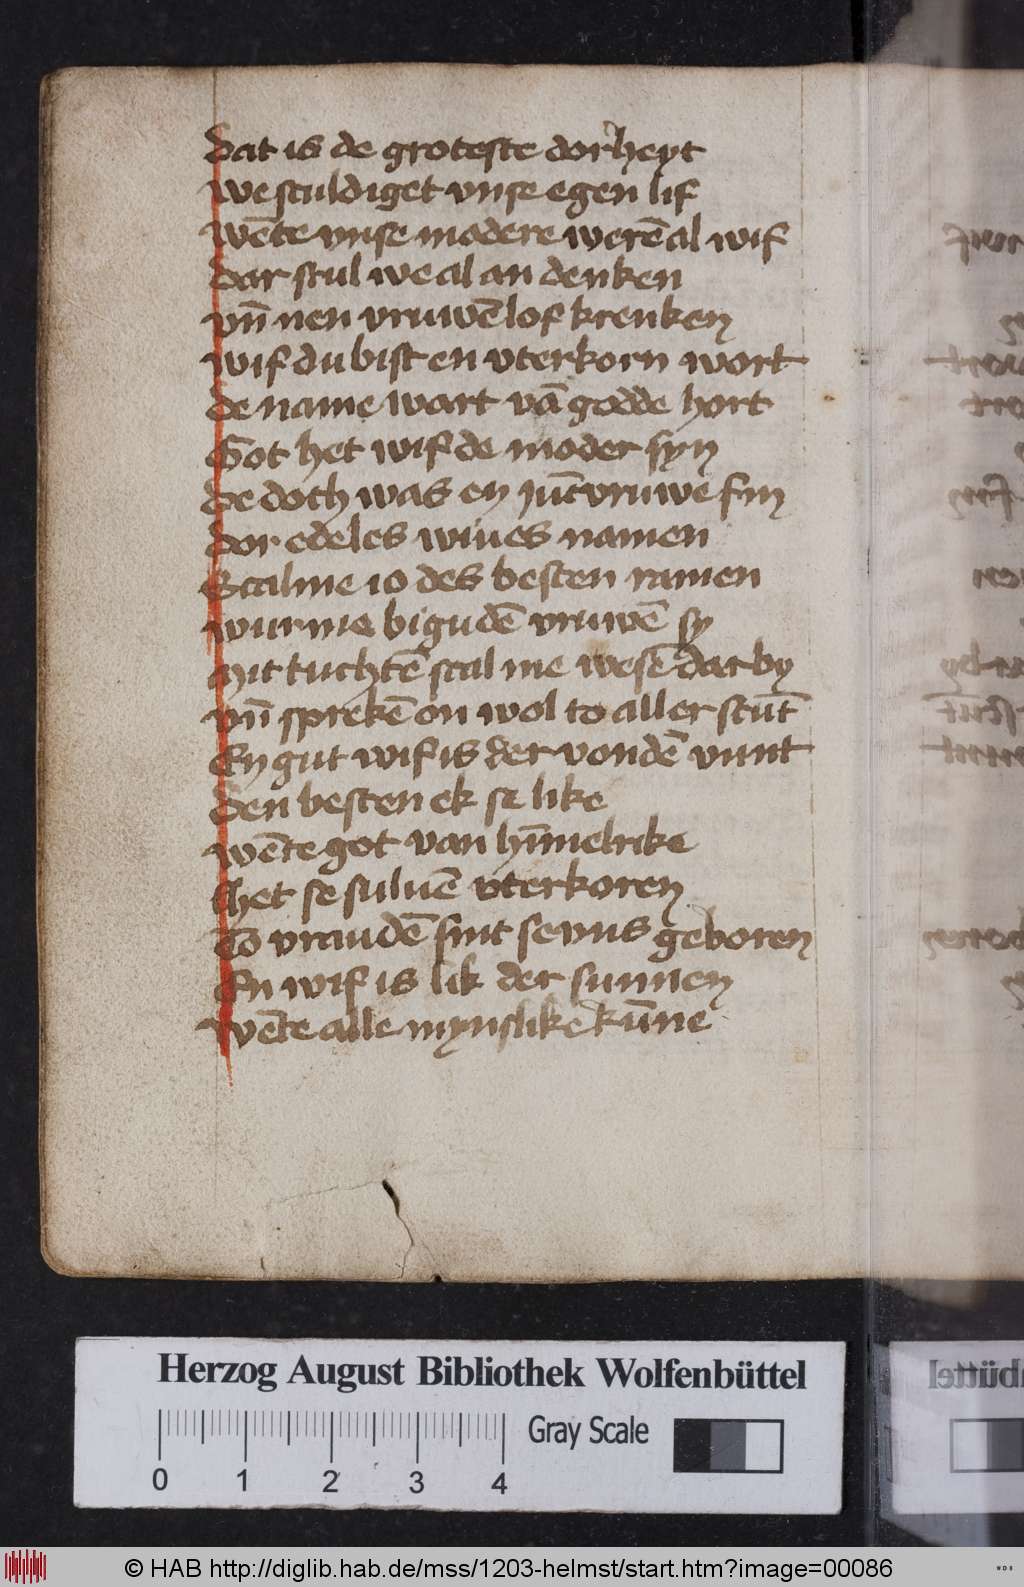 Dat is de groteste dorheyt
We sculdiget vnse egen lif
Wēte vnse modere werē al wif
Dar scul we al an denken
vn̄ nen vruwē lof krenken
Wif du bist en vterkorn wort
De name wart vā godde hort
Got het wif de moder syn
De doch was en vruwe fin
Dor edeles wiues namen
Scalme io des besten ramen
Wur me bi gudē vruwē sy
Mit tuchtē scal me wesē dar by
vn̄ sprekē on wol to aller stūt
En gut wif is der vondē vunt
Den besten ek se like
Wēte got van hīmelrike
Het se suluē vterkoren
To vraudē sint se vns geboren
En wif is lik der sunnen
Wēte alle mynslike kūne
Herzog August Bibliothek Wolfenbüttel
Gray Scale
0 1 2 3 4
© HAB http://diglib.hab.de/mss/1203-helmst/start.htm?image=00086